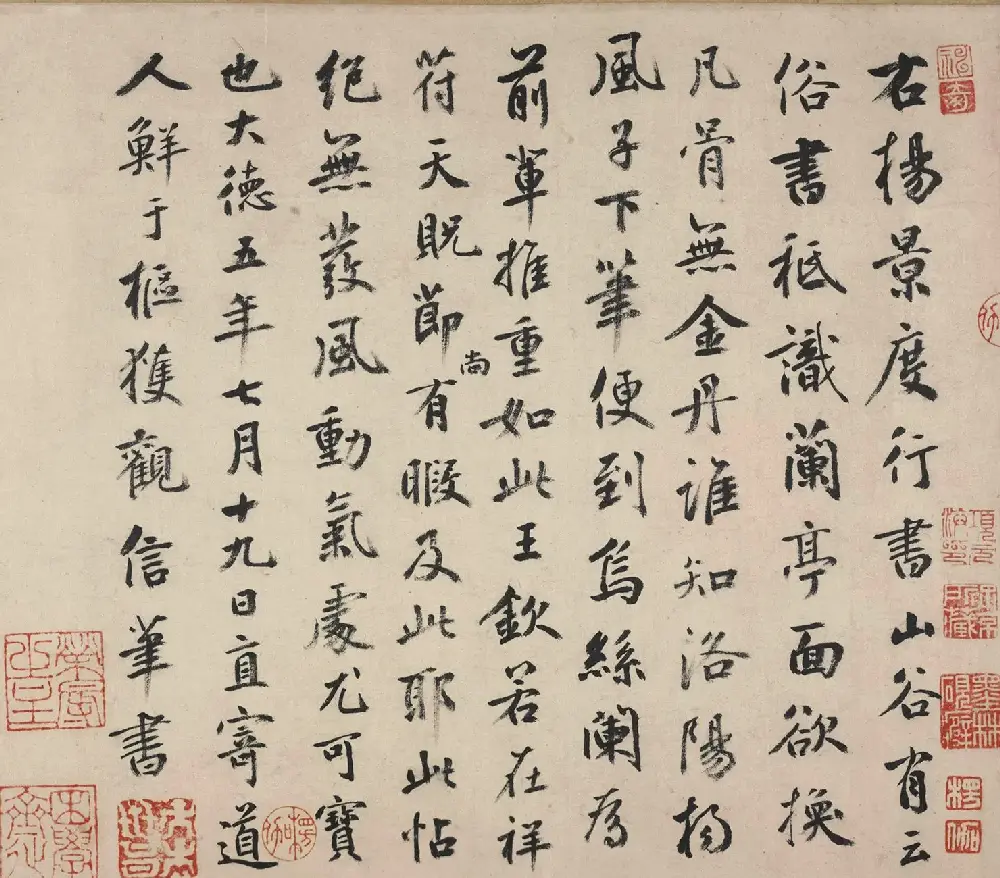 右楊景度行書山谷有云
俗書秖識蘭亭面欲換
凡骨無金丹誰知洛陽楊
風子下筆便到烏絲闌為
前軰推重如此王欽若在祥
符天貺節尚有暇及此耶此帖
絕無發風動氣處尤可寶
也大德五年七月十九日直寄道
人鮮于樞獲觀信筆書